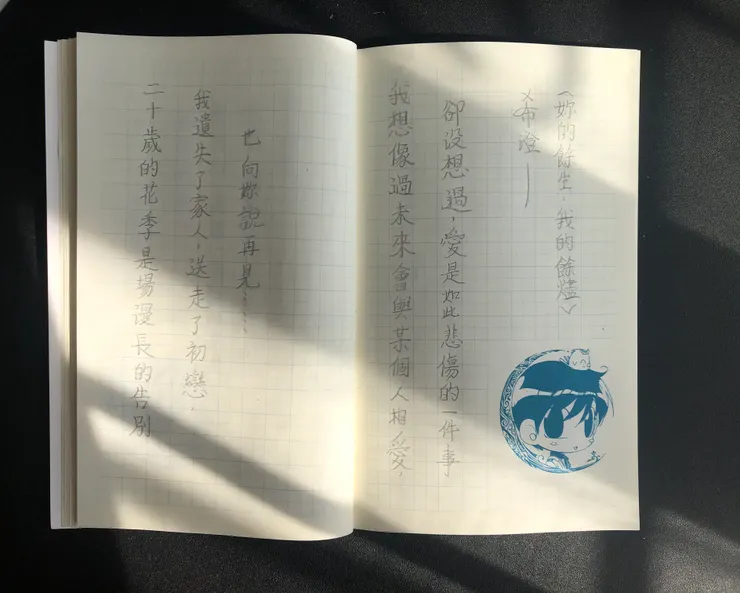 〈妳的餘生，我的餘燼〉
希澄—
我想像過未來會與某個人相愛，
卻沒想過，愛是如此悲傷的一件事
二十歲的花季是場漫長的告別
我遺失了家人，送走了初戀，
也向妳說再見……